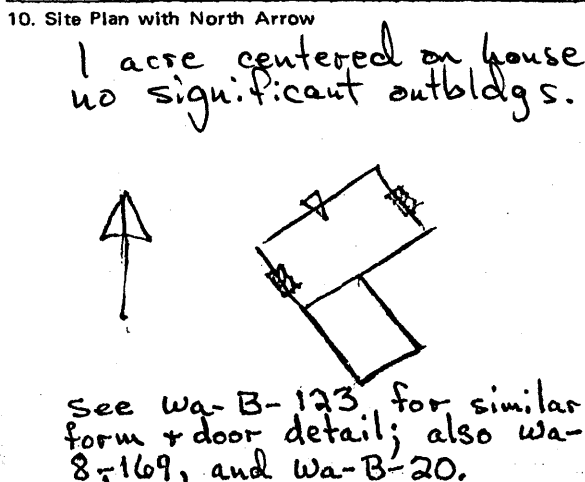 10. Site Plan with North Arrow
1 acre centered on house
no significant outbldgs.
See Wa-B-123 for similar
form + door detail; also Wa-
B-169, and Wa-B-20.